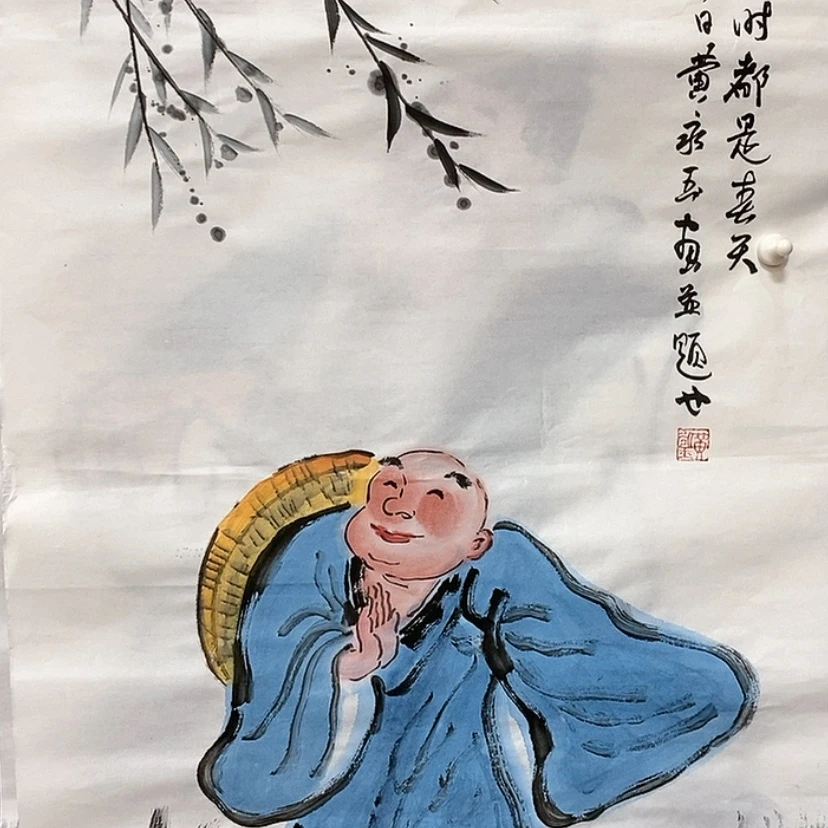 时都是春天
日黄永玉画并题也